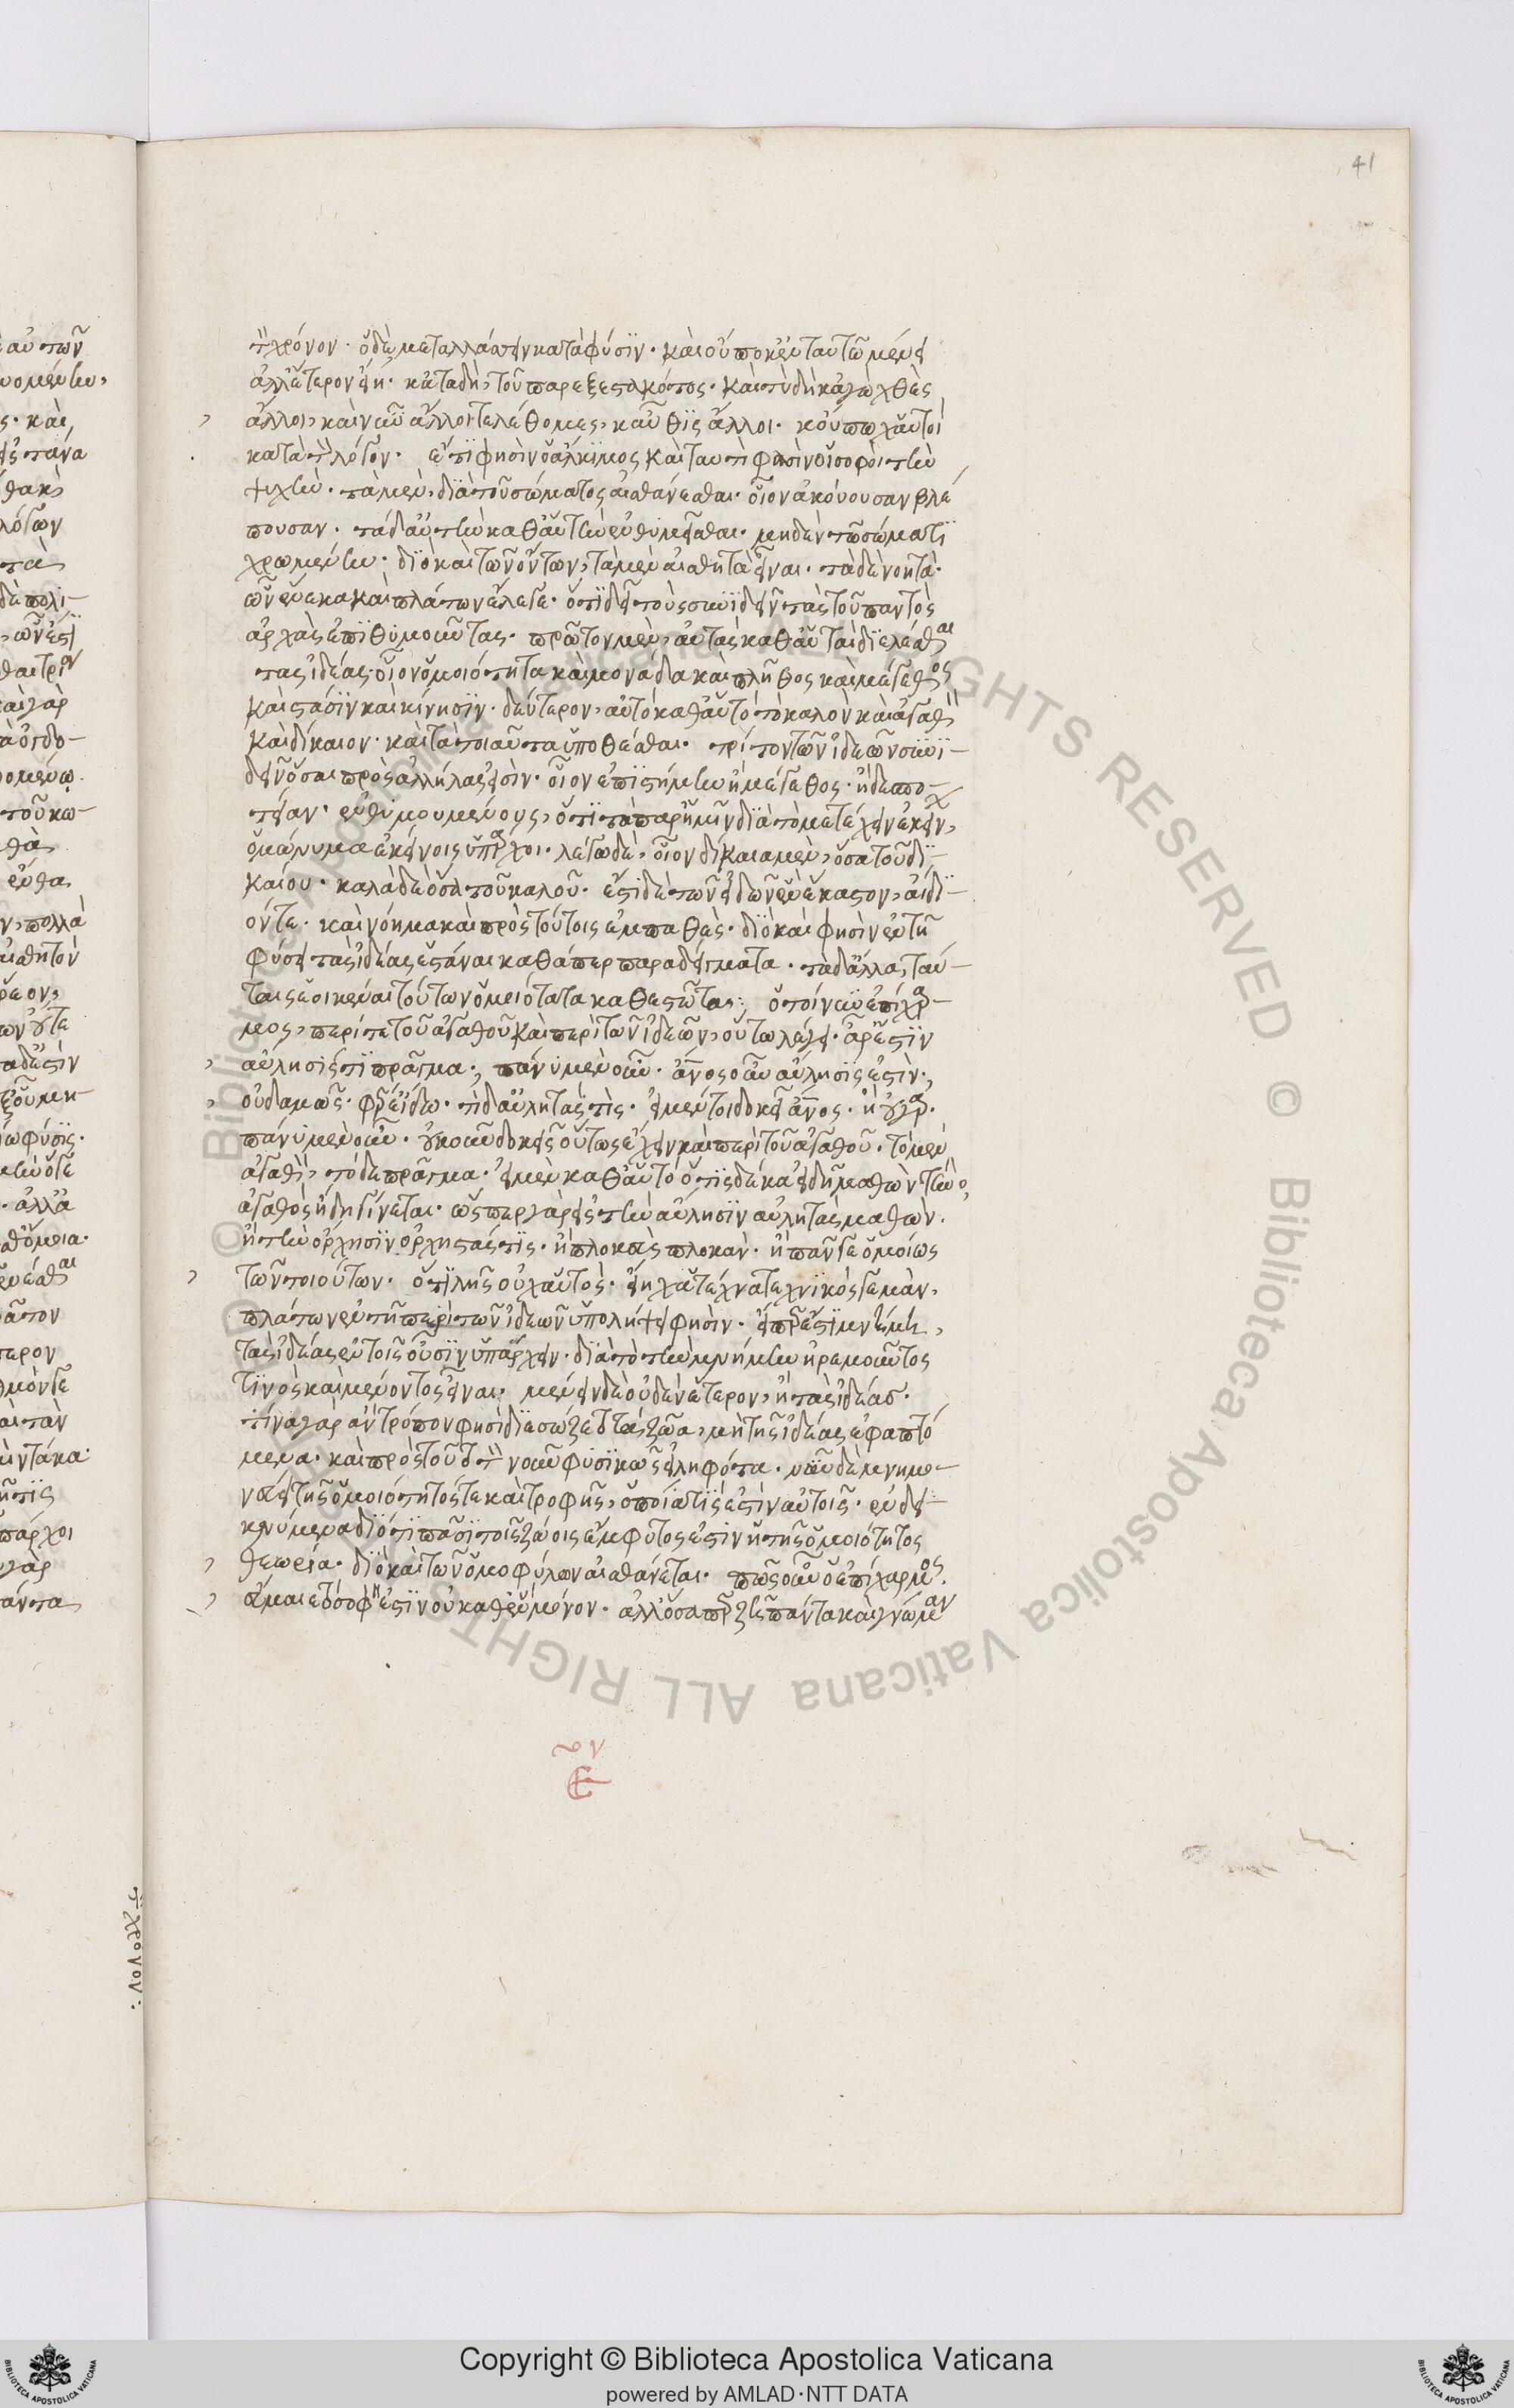 41
τὸν χρόνον· ὃ δὲ μεταλλάσσει κατὰ φύσιν· καὶ οὔποκ' ἐν ταυτῶ μένει
ἀλλ' ἕτερον εἴη· κατα δὴ, τοῦ παρεξεστακότος· καὶ τὺ δὴ κἀγὼ χθὲς
ἄλλοι, καὶ νῦν ἄλλοι τελέθομες, καὖθις ἄλλοι· κοὔπωχ' αὑτοὶ
κατὰ τὸν λόγον· ἔτι φησὶν ὁ ἄλκιμος καὶ ταυτὶ φασὶν οἱ σοφοὶ τὴν
ψυχὴν· τὰ μὲν, διὰ τοῦ σώματος αἰσθάνεσθαι· οἷον ἀκούουσαν βλέ
πουσαν· τὰ δ' αὐτὴν καθ' αὑτὴν ἐνθυμεῖσθαι· μηδὲν τῶ σώματι
χρωμένην· διὸ καὶ τῶν ὄντων, τὰ μὲν αἰσθητὰ εἶναι· τὰ δὲ νοητά·
ὧν ἕνεκα καὶ πλάτων ἔλεγε· ὅτι δεῖ τοὺς συνιδεῖν τὰς τοῦ παντὸς
ἀρχὰς ἐπιθυμοῦντας· πρῶτον μὲν, αὐτὰς καθ' αὑτὰς διελέσθαι
τὰς ἰδέας· οἷον ὁμοιότητα καὶ μονάδα καὶ πλῆθος καὶ μέγεθος
καὶ στάσιν καὶ κίνησιν· δεύτερον, αὐτὸ καθ' αὑτὸ τὸ καλὸν καὶ ἀγαθὸν
καὶ δίκαιον· καὶ τὰ τοιαῦτα ὑποθέσθαι· τρίτον τῶν ἰδεῶν συνι-
δεῖν ὅσαι πρὸς ἀλλήλας εἰσὶν· οἷον ἐπιστήμην ἢ μέγεθος· ἢ δεσπο-
τείαν· ἐνθυμουμένους, ὅτι τὰ παρ' ἡμῖν διὰ τὸ μετέχειν ἐκείν,
ὁμώνυμα ἐκείνοις ὑπάρχοι· λέγω δὲ, οἷον δίκαια μὲν, ὅσα τοῦ δι-
καίου· καλὰ δὲ ὅσα τοῦ καλοῦ· ἔστι δὲ τῶν εἰδῶν ἓν ἕκαστον, ἀίδι-
όν τε· καὶ νόημα καὶ πρὸς τούτοις ἐμπαθὲς· διὸ καὶ φησὶν ἐν τῆ
φύσει τὰς ἰδέας ἑστάναι καθάπερ παραδείγματα· τὰ δ' ἄλλα, ταύ-
ταις ἐοικέναι τούτων ὁμοιότατα καθεστῶτας· ὁ τοίνυν ἐπίχαρ-
μος, περί τε τοῦ ἀγαθοῦ καὶ περὶ τῶν ἰδεῶν, οὕτω λέγει· ἆρ' ἔστιν
αὔλησίς τι πρᾶγμα·, πάνυ μὲν οὖν· ἄνος οὖν αὔλησίς ἐστιν·,
οὐδαμῶς· φέρ' εἴδω· τί δ' αὐλητάς τίς· εἶμέν τοι δοκεῖ ἄνος· ἢ οὐ γάρ·
πάνυ μὲν οὖν· οὐκοῦν δοκεῖς οὕτως ἔχειν καὶ περὶ τοῦ ἀγαθοῦ· τὸ μὲν
ἀγαθὸν, τὸ δὲ πρᾶγμα· εἶμεν καθ' αὑτό ὅτις δέ κα εἰδῆ μαθὼν τῆνο,
ἀγαθός ἤδη γίνεται· ὥσπερ γάρ εἰς τὴν αὔλησιν αὐλητὰς μαθών·
ἢ τὴν ὄρχησιν ὀρχηστάς τις· ἢ πλοκεὺς πλοκὰν· ἢ πᾶν γε ὁμοίως
τῶν τοιούτων· ὅτι λῆς οὐχ αὑτὸς· εἴη χ' ἁ τέχνα τεχνικός γε μὰν,
πλάτων ἐν τῆ περὶ τῶν ἰδεῶν ὑπολήψει φησὶν· εἴπερ ἔστι μνήμη,
τὰς ἰδέας ἐν τοῖς οὖσιν ὑπάρχειν· διὰ τὸ τὴν μνήμην ἠρεμοῦντος
τινὸς καὶ μένοντος εἶναι· μένειν δὲ οὐδὲν ἕτερον, ἢ τὰς ἰδέας·
τίνα γὰρ ἂν τρόπον φησὶ διεσώζετο τὰ ζῶα, μὴ τῆς ἰδέας ἐφαπτό
μενα· καὶ πρὸς τοῦτο τὸν νοῦν φυσικῶς εἰληφότα· νῦν δὲ μνημο-
νεύει τῆς ὁμοιότητός τε καὶ τροφῆς, ὁποία τίς ἐστὶν αὐτοῖς· ἐνδει-
κνύμενα διότι πᾶσι τοῖς ζώοις ἔμφυτος ἐστιν ἡ τῆς ὁμοιότητος
θεωρία· διὸ καὶ τῶν ὁμοφύλων αἰσθάνεται· πῶς οὖν ὁ ἐπίχαρμος·
εὔμαιε τὸ σοφόν ἐστιν οὐ καθ' ἓν μόνον· ἀλλ' ὅσα περ ζῆ πάντα καὶ γνώμαν
© Biblioteca Apostolica Vaticana ALL RIGHTS RESERVED © Biblioteca Apostolica Vaticana ALL RIGHTS
Copyright © Biblioteca Apostolica Vaticana
powered by AMLAD·NTT DATA
BIBLIOTECA APOSTOLICA VATICANA
BIBLIOTECA APOSTOLICA VATICANA